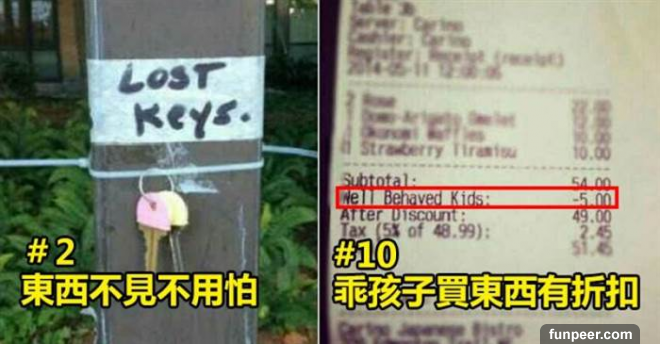 LOST
Keys.
#2
東西不見不用怕
Table 3b
Server: Carino
Cashier: Carino
2014-05-11 12:00:06
22.00
12.00
10.00
Strawberry Tiramisu 10.00
Subtotal: 54.00
Well Behaved Kids: -5.00
After Discount: 49.00
Tax (5% of 48.99): 2.45
51.45
#10
乖孩子買東西有折扣
Carino Japanese Bistro
funpeer.com